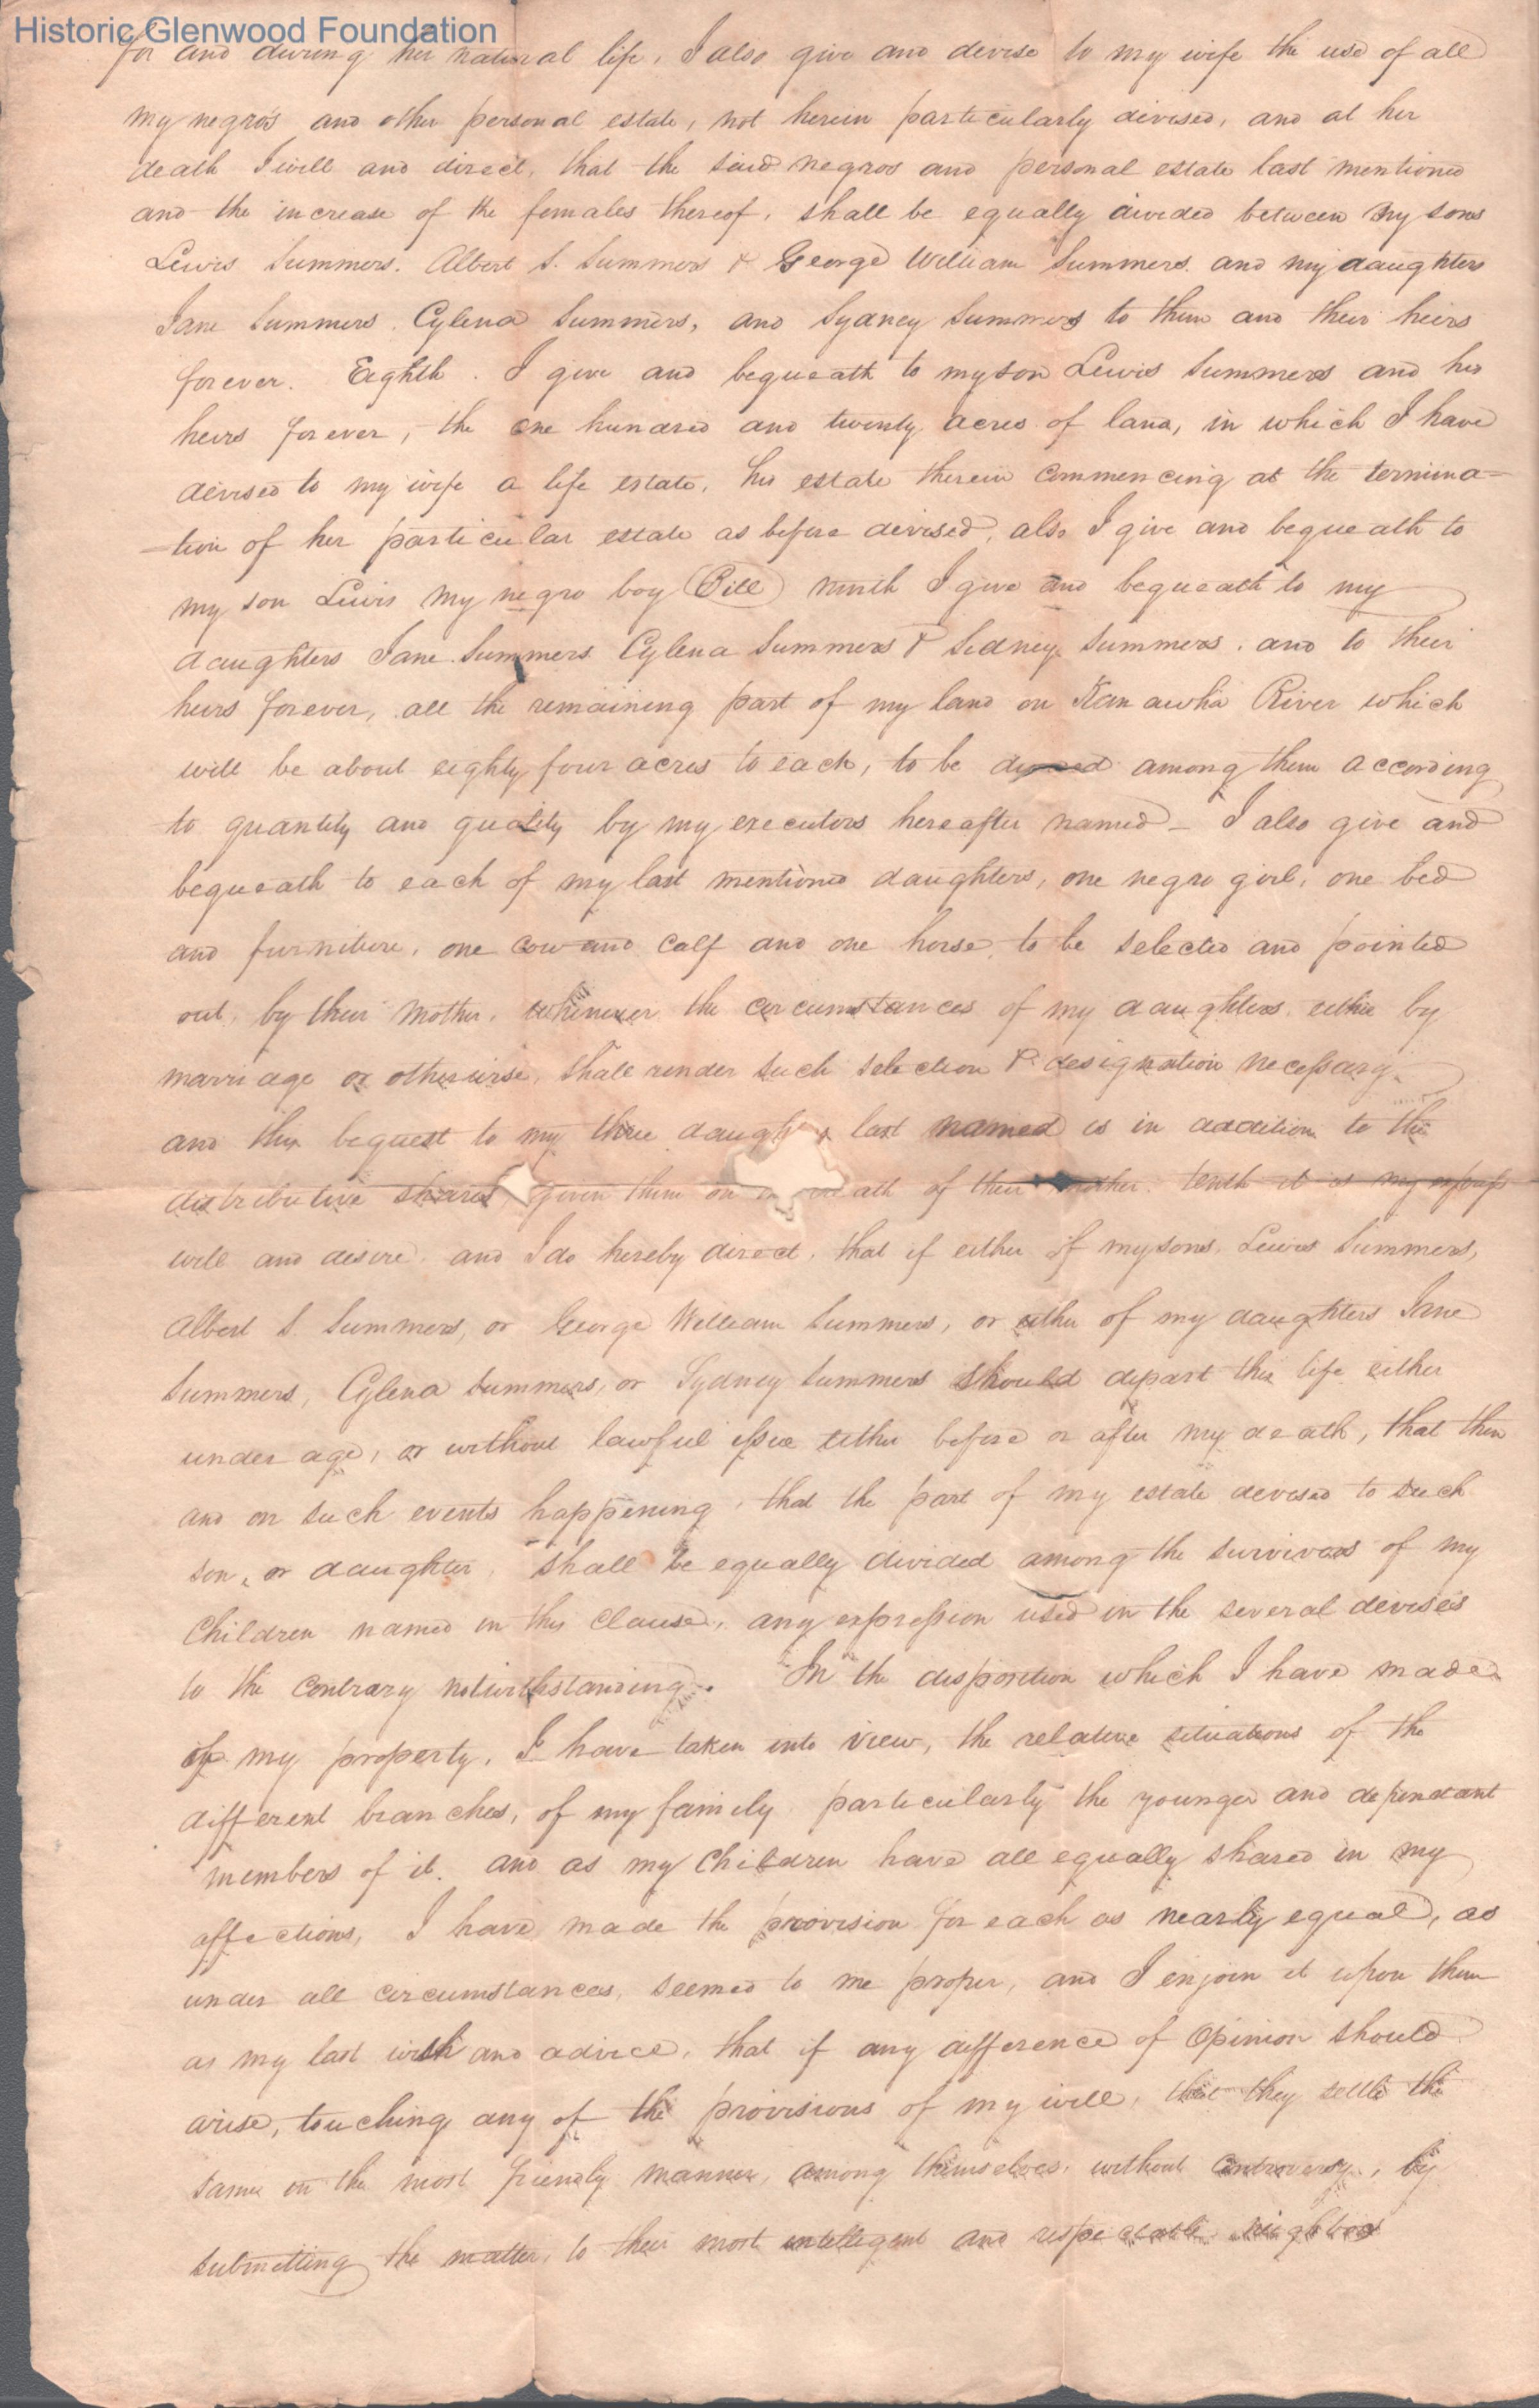 Historic Glenwood Foundation
for and during her natural life, I also give and devise to my wife the use of all
my negro's and other personal estate, not herein particularly devised, and at her
death I will and direct, that the said negros and personal estate last mentioned
and the increase of the females thereof, shall be equally divided between my sons
Lewis Summers. Albert S. Summers & George William Summers. and my daughters
Jane Summers. Cylena Summers, and Sydney Summers to them and their heirs
forever. Eighth. I give and bequeath to my son Lewis Summers and his
heirs forever, the one hundred and twenty acres of land, in which I have
devised to my wife a life estate, his estate therein commencing at the termina-
-tion of her particular estate as before devised, also I give and bequeath to
my son Lewis my negro boy Bill ninth I give and bequeath to my
daughters Jane Summers Cylena Summers & Sidney Summers. and to their
heirs forever, all the remaining part of my land on Kanawha River which
will be about eighty four acres to each, to be among them according
to quantity and quality by my executors hereafter named – I also give and
bequeath to each of my last mentioned daughters, one negro girl, one bed
and furniture, one cow and calf and one horse, to be selected and pointed
out, by their mother, whenever the circumstances of my daughters either by
marriage or otherwise, shall render such selection & designation necessary.
and this bequest to my three daugh s last named is in addition to the
distributive shares given them on eath of their mother. tenth it is my express
will and desire, and I do hereby direct, that if either of my sons, Lewis Summers,
Albert S. Summers, or George William Summers, or either of my daughters Jane
Summers, Cylena Summers, or Sydney Summers should depart this life either
under age, or without lawful issue either before or after my death, that then
and on such events happening, that the part of my estate devised to such
son, or daughter, shall be equally divided among the survivors of my
Children named in this Clause, any expression used in the several devises
to the contrary notwithstanding. In the disposition which I have made
of my property, I have taken into view, the relative situations of the
different branches, of my family particularly the younger and dependant
members of it. and as my Children have all equally shared in my
affections, I have made the provision for each as nearly equal, as
under all circumstances, seemed to me proper, and I enjoin it upon them
as my last wish and advice, that if any difference of Opinion should
arise, touching any of the provisions of my will, that they settle the
same in the most friendly manner, among themselves, without controversy, by
submitting the matter, to their most intelligent and respectable neighbors